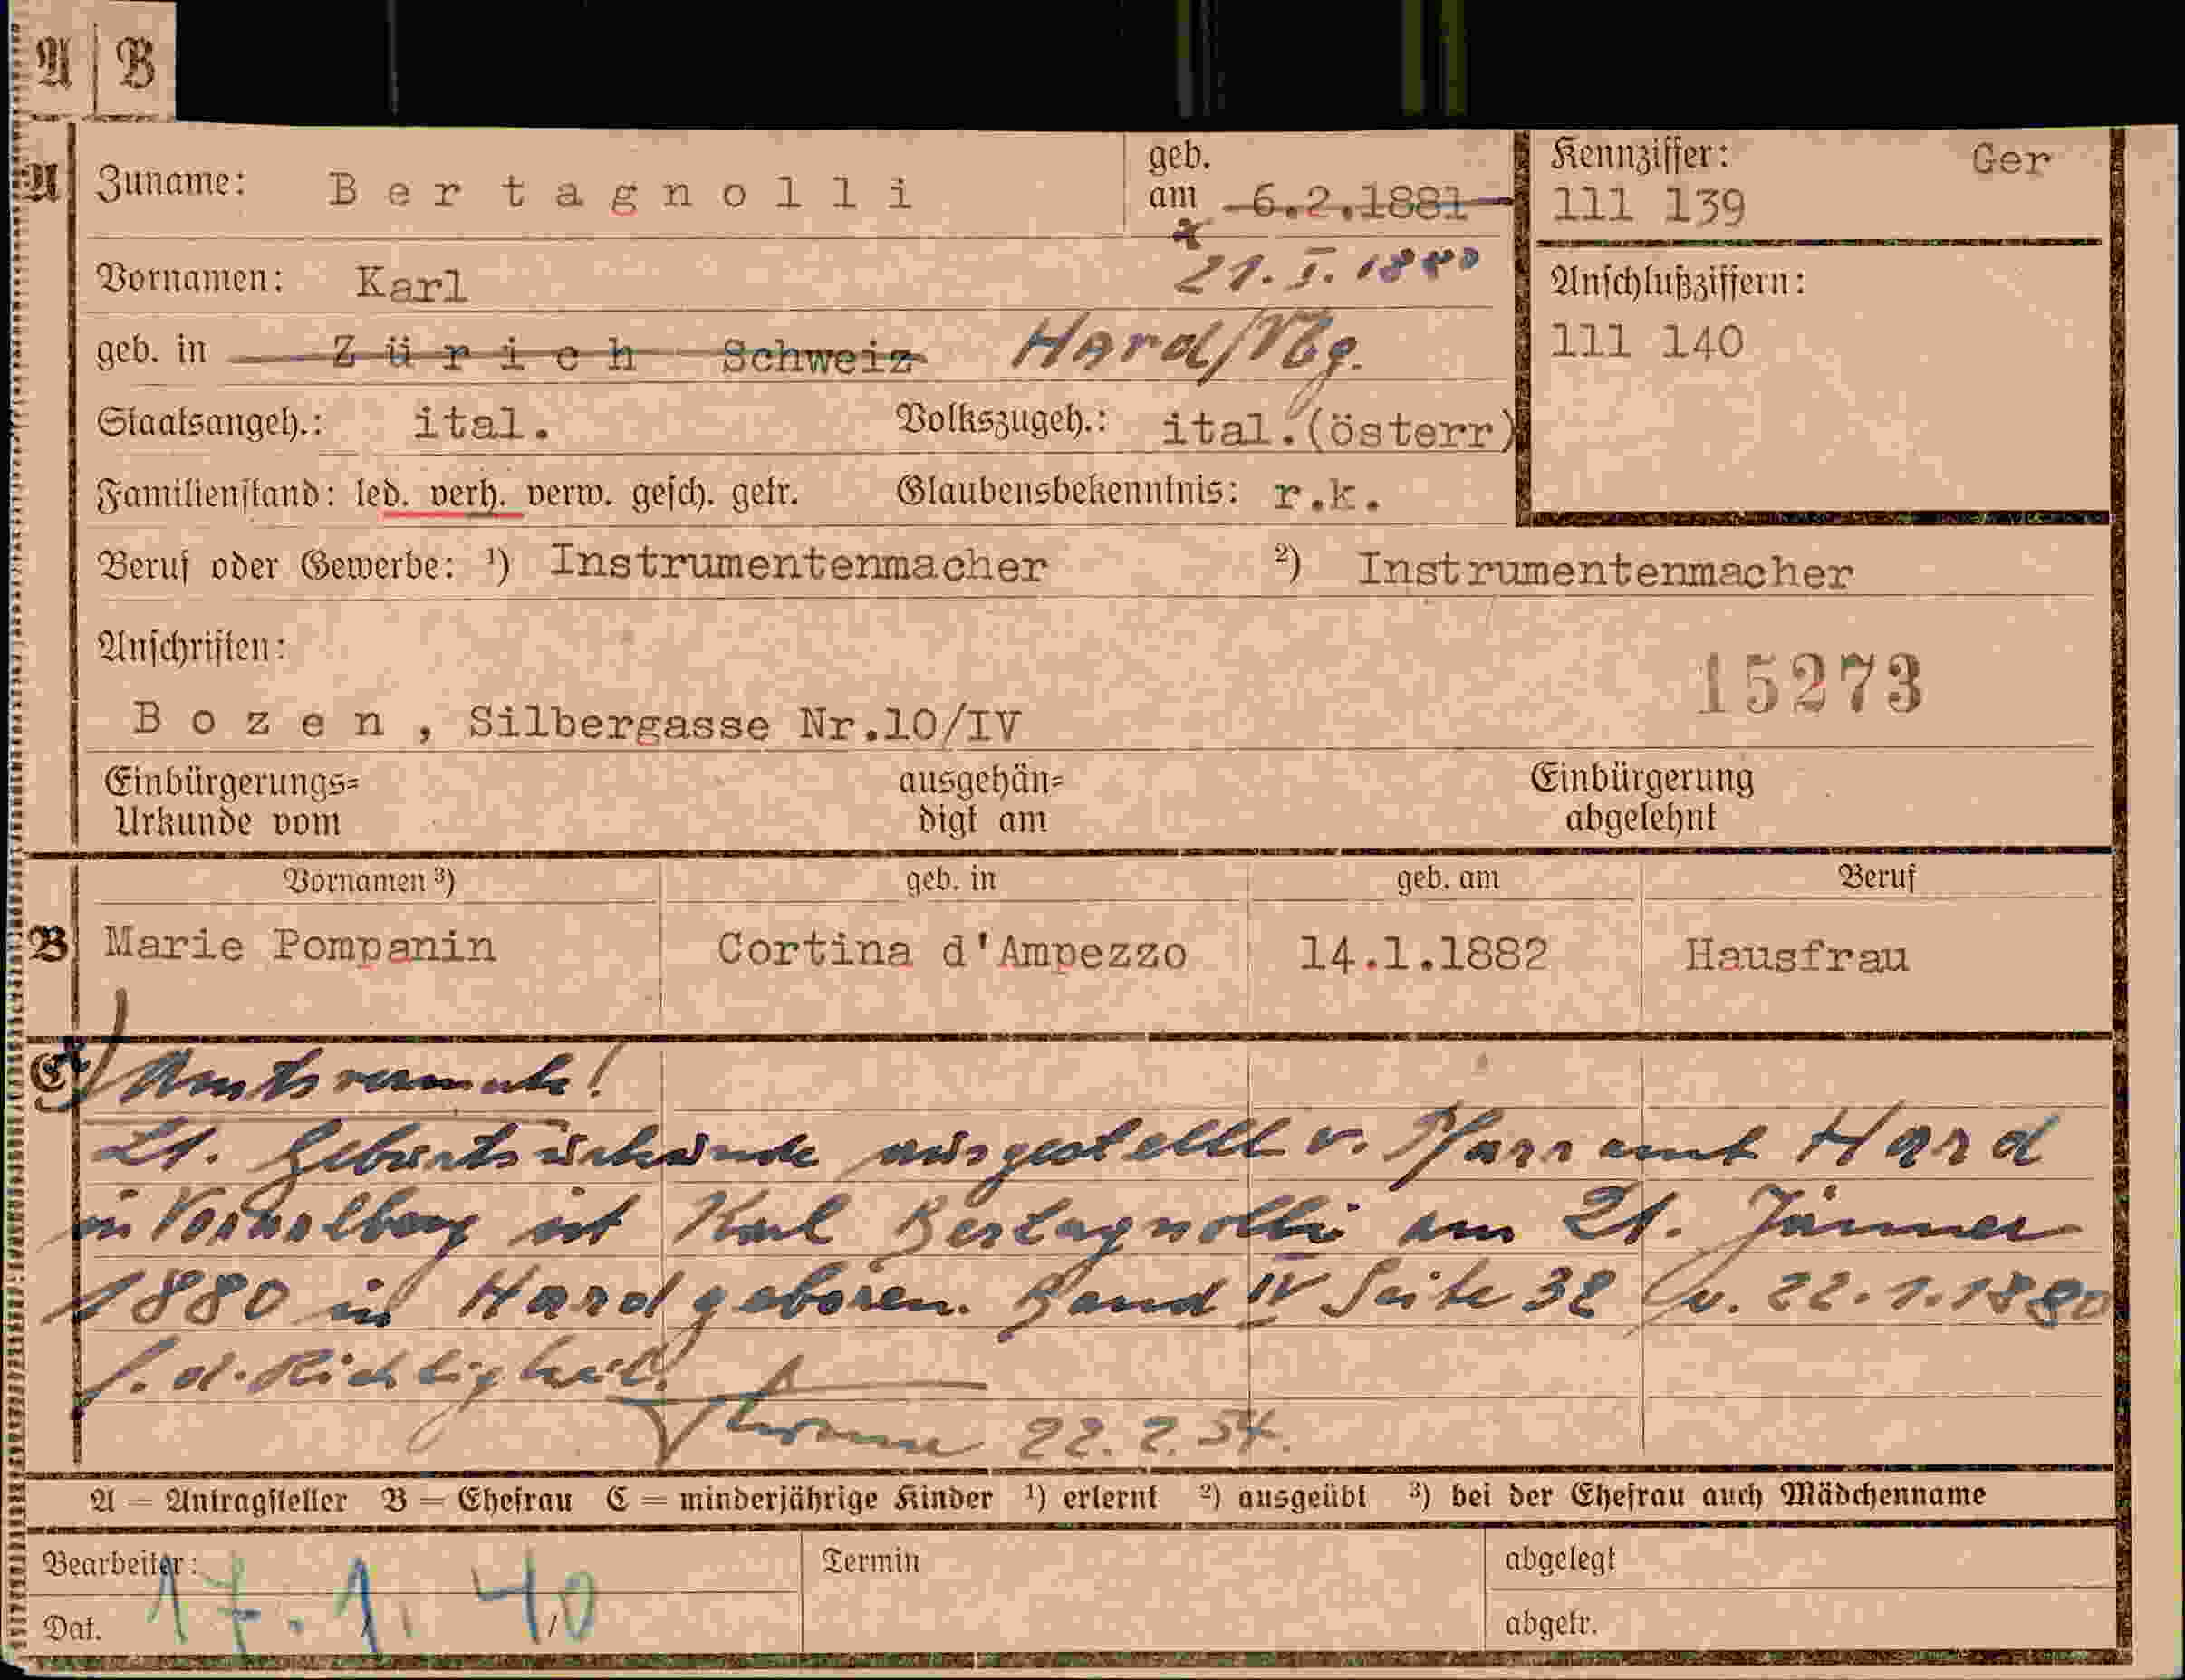 A | B
A Zuname: Bertagnolli geb. am 6.2.1881 Kennziffer: Ger
111 139
x 21.I.1880
Vornamen: Karl Anschlußziffern:
geb. in Zürich Schweiz Hard/Vbg. 111 140
Staatsangeh.: ital. Volkszugeh.: ital.(österr)
Familienstand: led. verh. verw. gesch. getr. Glaubensbekenntnis: r.k.
Beruf oder Gewerbe: ¹) Instrumentenmacher ²) Instrumentenmacher
Anschriften:
15273
Bozen, Silbergasse Nr.10/IV
Einbürgerungs= ausgehän= Einbürgerung
Urkunde vom digt am abgelehnt
Vornamen ³) geb. in geb. am Beruf
B Marie Pompanin Cortina d'Ampezzo 14.1.1882 Hausfrau
C x) Amtsvermerk!
Lt. Geburtsurkunde ausgestellt v. Pfarramt Hard
in Vorarlberg ist Karl Bertagnolli am 21. Jänner
1880 in Hard geboren. Band IV Seite 32 v. 22.1.1880
f. d. Richtigkeit.
22.2.54.
A = Antragsteller B = Ehefrau C = minderjährige Kinder ¹) erlernt ²) ausgeübt ³) bei der Ehefrau auch Mädchenname
Bearbeiter: Termin abgelegt
Dat. 17.1.40 abgetr.